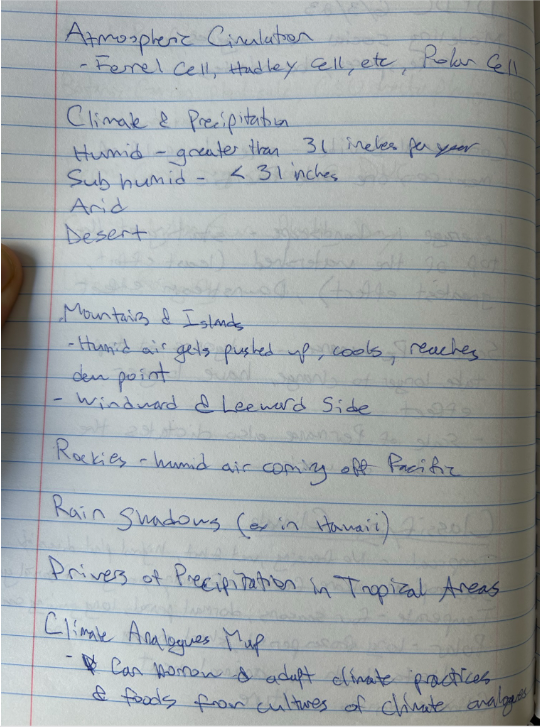 Atmospheric Circulation
- Ferrel Cell, Hadley Cell, etc, Polar Cell
Climate & Precipitation
Humid - greater than 31 inches per year
Sub humid - < 31 inches
Arid
Desert
Mountains & Islands
- Humid air gets pushed up, cools, reaches
dew point
- Windward & Leeward Side
Rockies - humid air coming off Pacific
Rain Shadows (ex in Hawaii)
Drivers of Precipitation in Tropical Areas
Climate Analogues Map
- Can borrow & adapt climate practices
& foods from cultures of climate analogues